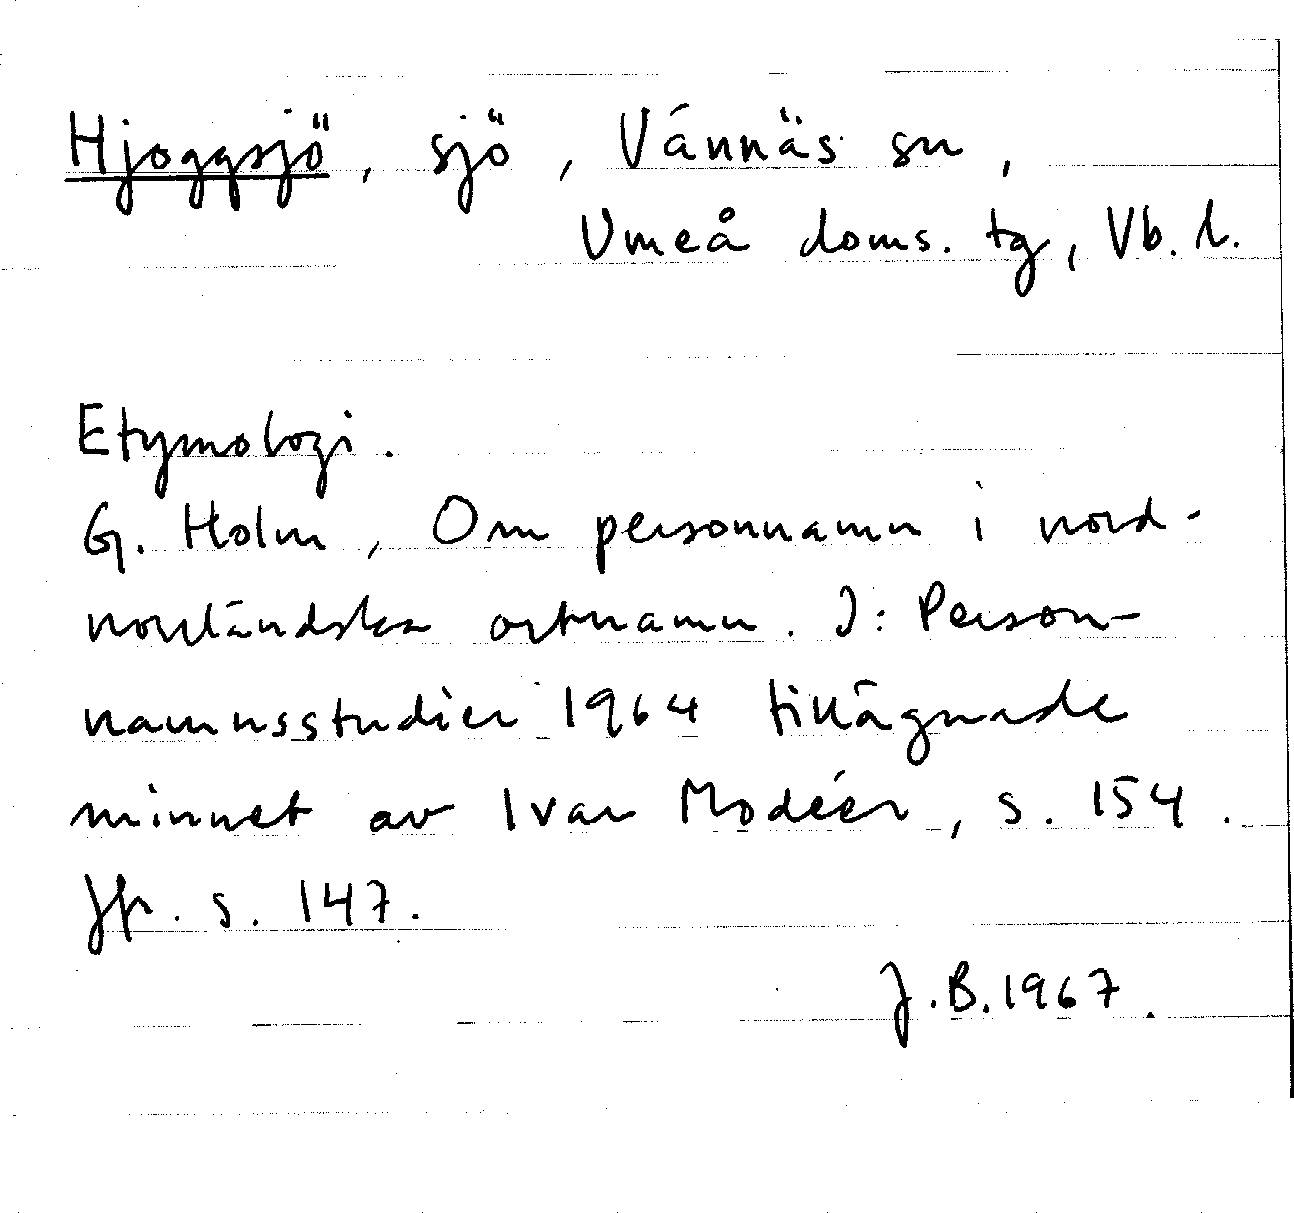 Hjoggsjö, sjö, Vännäs sn,
Umeå doms. tg, Vb. l.
Etymologi.
G. Holm, Om personnamn i nord-
norrländska ortnamn. I: Person-
namnsstudier 1964 tillägnade
minnet av Ivar Modéer, s. 154.
Jfr. s. 147.
J.B. 1967.